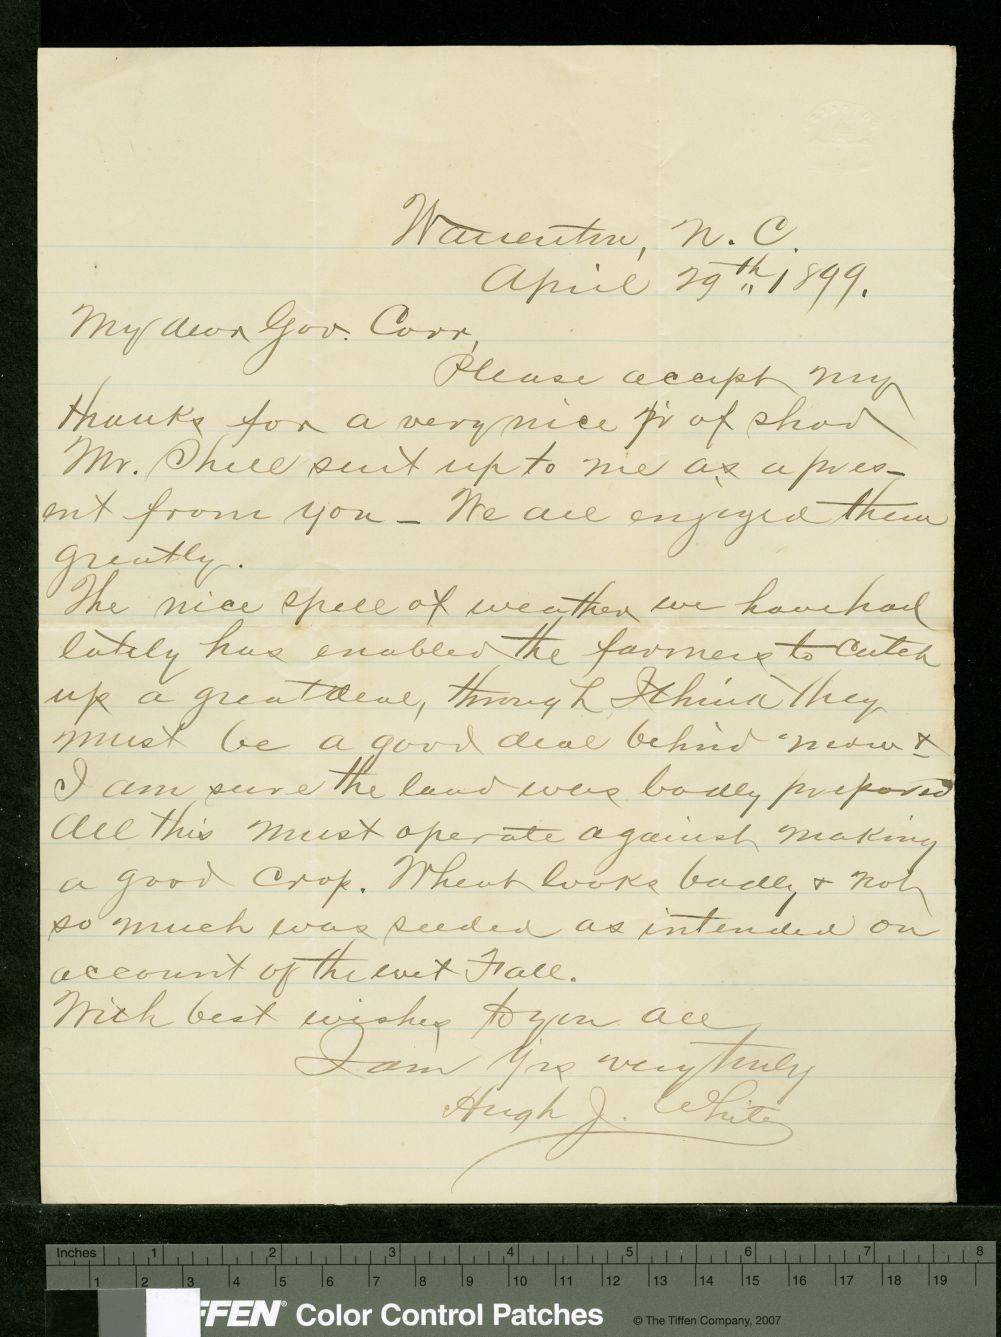 Warrenton, N. C.
April 29th, 1899.
My dear Gov. Carr,
Please accept my
thanks for a very nice pr of shad
Mr. Shell sent up to me as a pres-
ent from you - We all enjoyed them
greatly.
The nice spell of weather we have had
lately has enabled the farmers to catch
up a great deal, though I think they
must be a good deal behind now &
I am sure the land was badly prepared
All this must operate against making
a good crop. Wheat looks badly & not
so much was seeded as intended on
account of the wet Fall.
With best wishes to you all
I am Yrs very truly
Hugh J. White
Inches 1 2 3 4 5 6 7 8
1 2 3 4 5 6 7 8 9 10 11 12 13 14 15 16 17 18 19
FFEN® Color Control Patches © The Tiffen Company, 2007